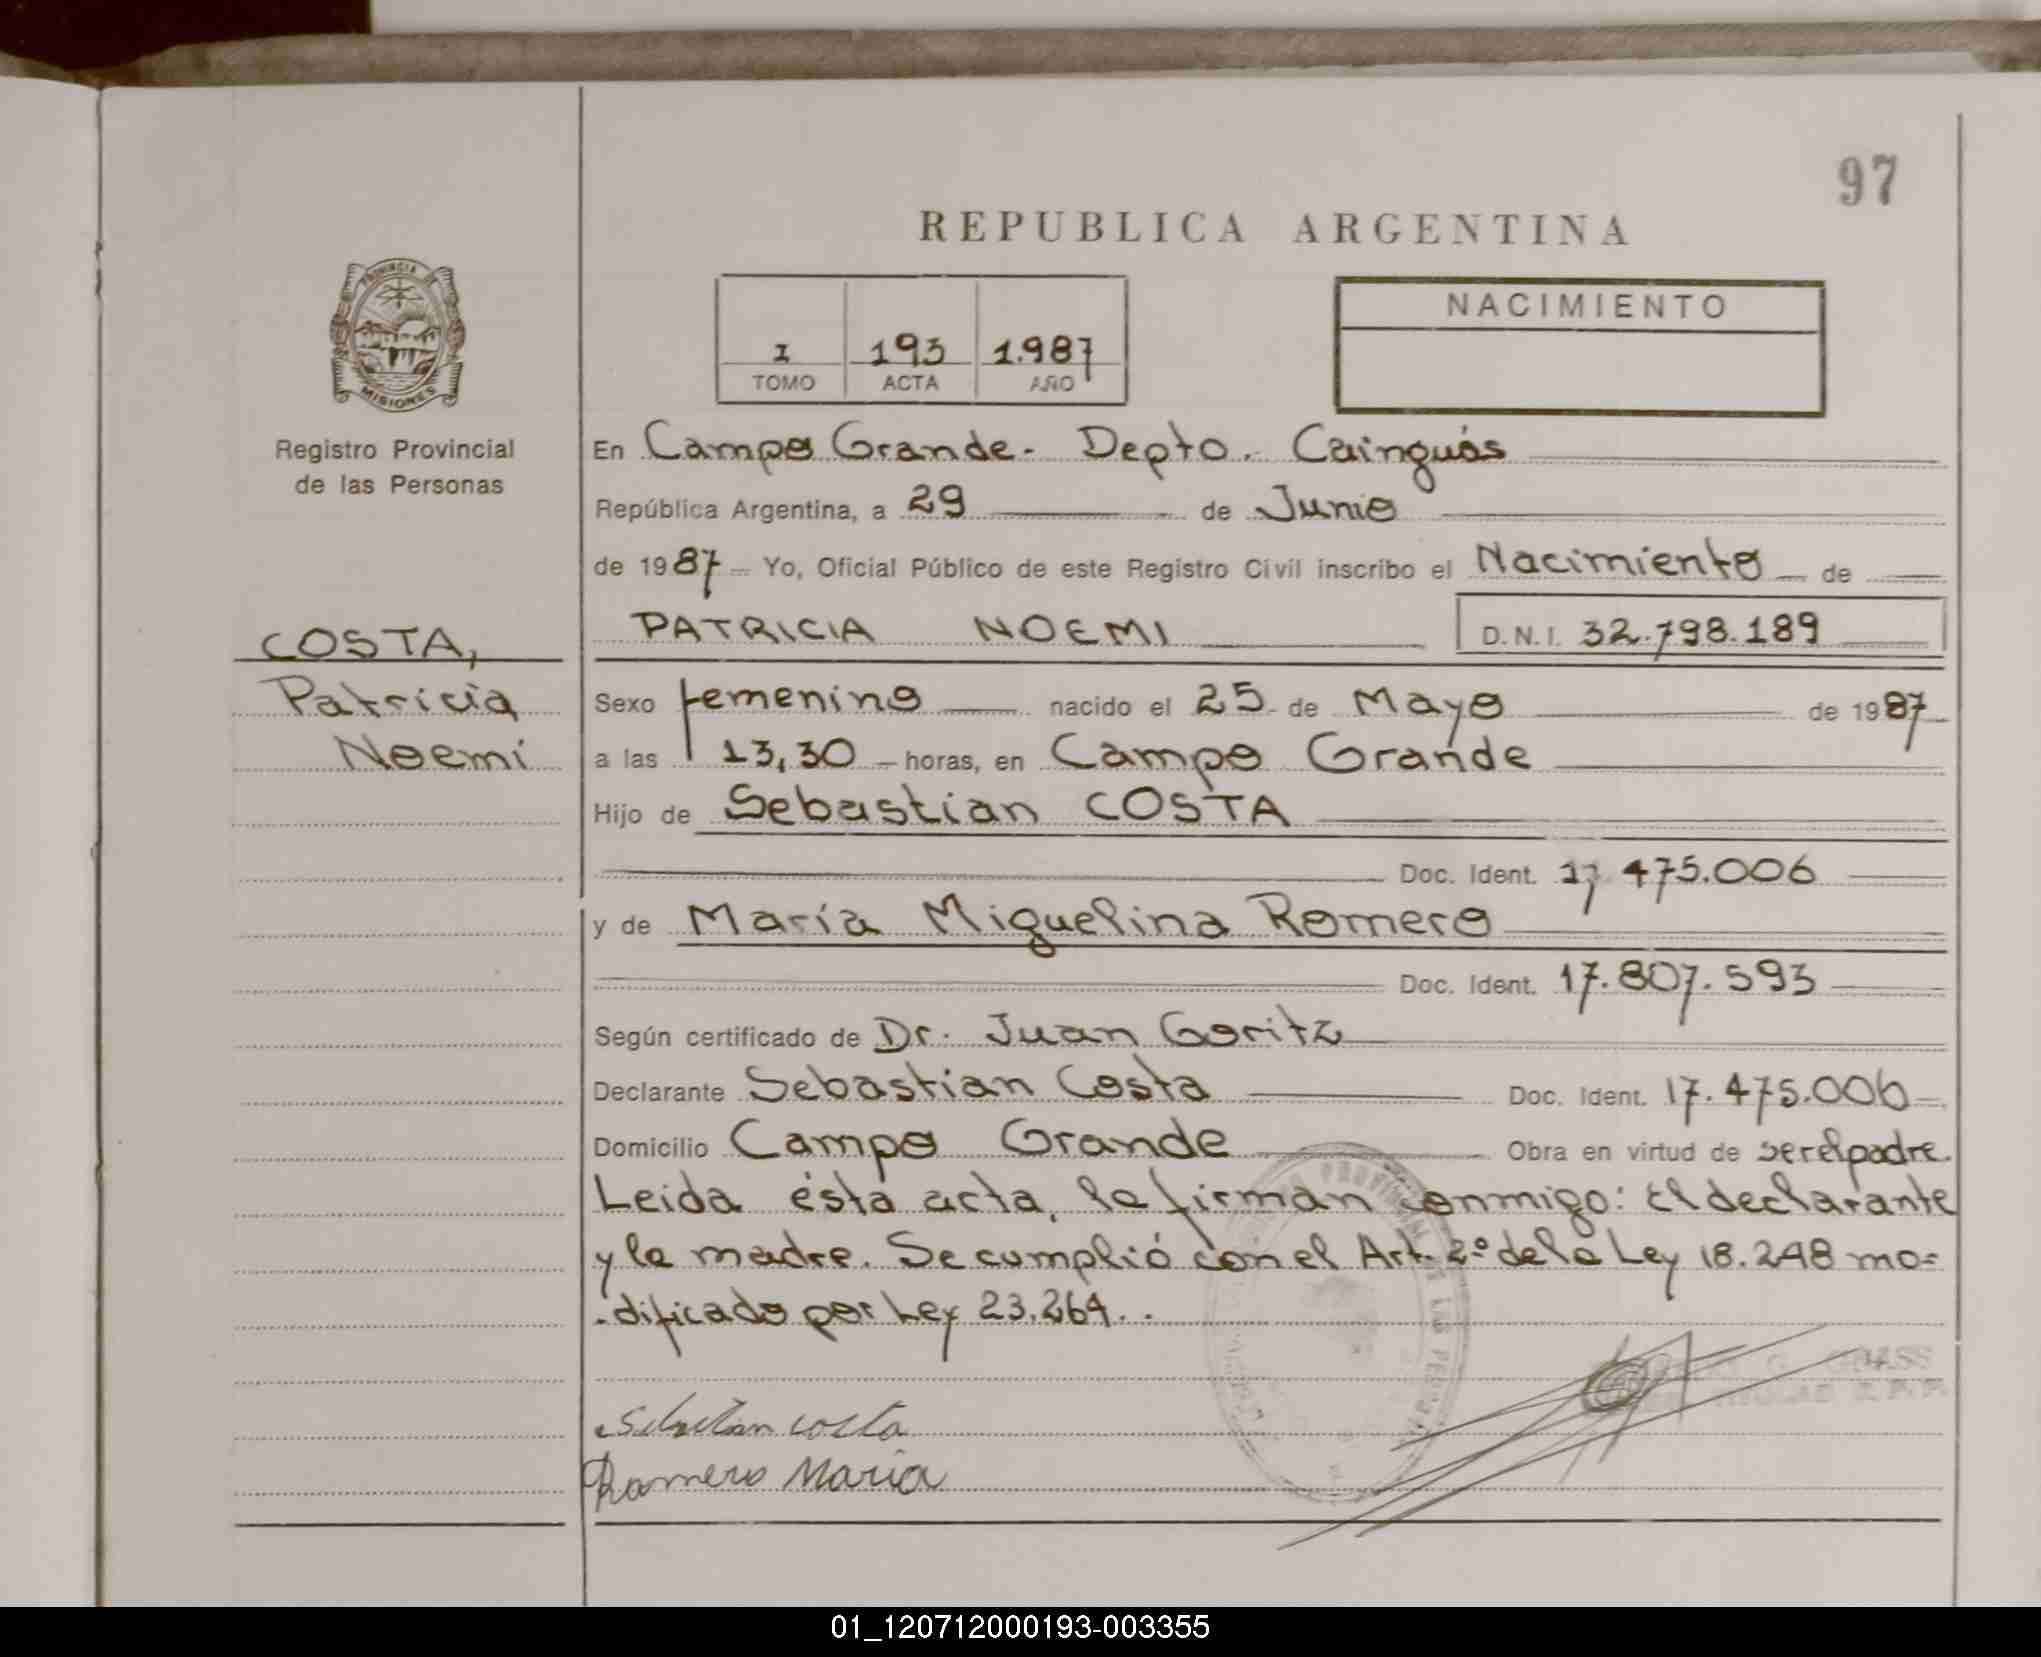 97
REPUBLICA ARGENTINA
PROVINCIA DE
MISIONES
Registro Provincial
de las Personas
I 193 1.987
TOMO ACTA AÑO
NACIMIENTO
En Campo Grande - Depto. Cainguás
República Argentina, a 29 de Junio
de 1987 Yo, Oficial Público de este Registro Civil inscribo el Nacimiento de
COSTA,
Patricia
Noemi
PATRICIA NOEMI D.N.I. 32.798.189
Sexo femenino nacido el 25 de Mayo de 1987
a las 13,30 horas, en Campo Grande
Hijo de Sebastian COSTA
Doc. Ident. 17 475.006
y de María Miguelina Romero
Doc. Ident. 17.807.593
Según certificado de Dr. Juan Goritz
Declarante Sebastian Costa Doc. Ident. 17.475.006
Domicilio Campo Grande Obra en virtud de ser el padre.
Leida ésta acta, la firman conmigo: El declarante
y la madre. Se cumplió con el Art. 2º de la Ley 18.248 mo=
dificado por Ley 23.264..
Sebastian costa
Romero Maria
01_120712000193-003355